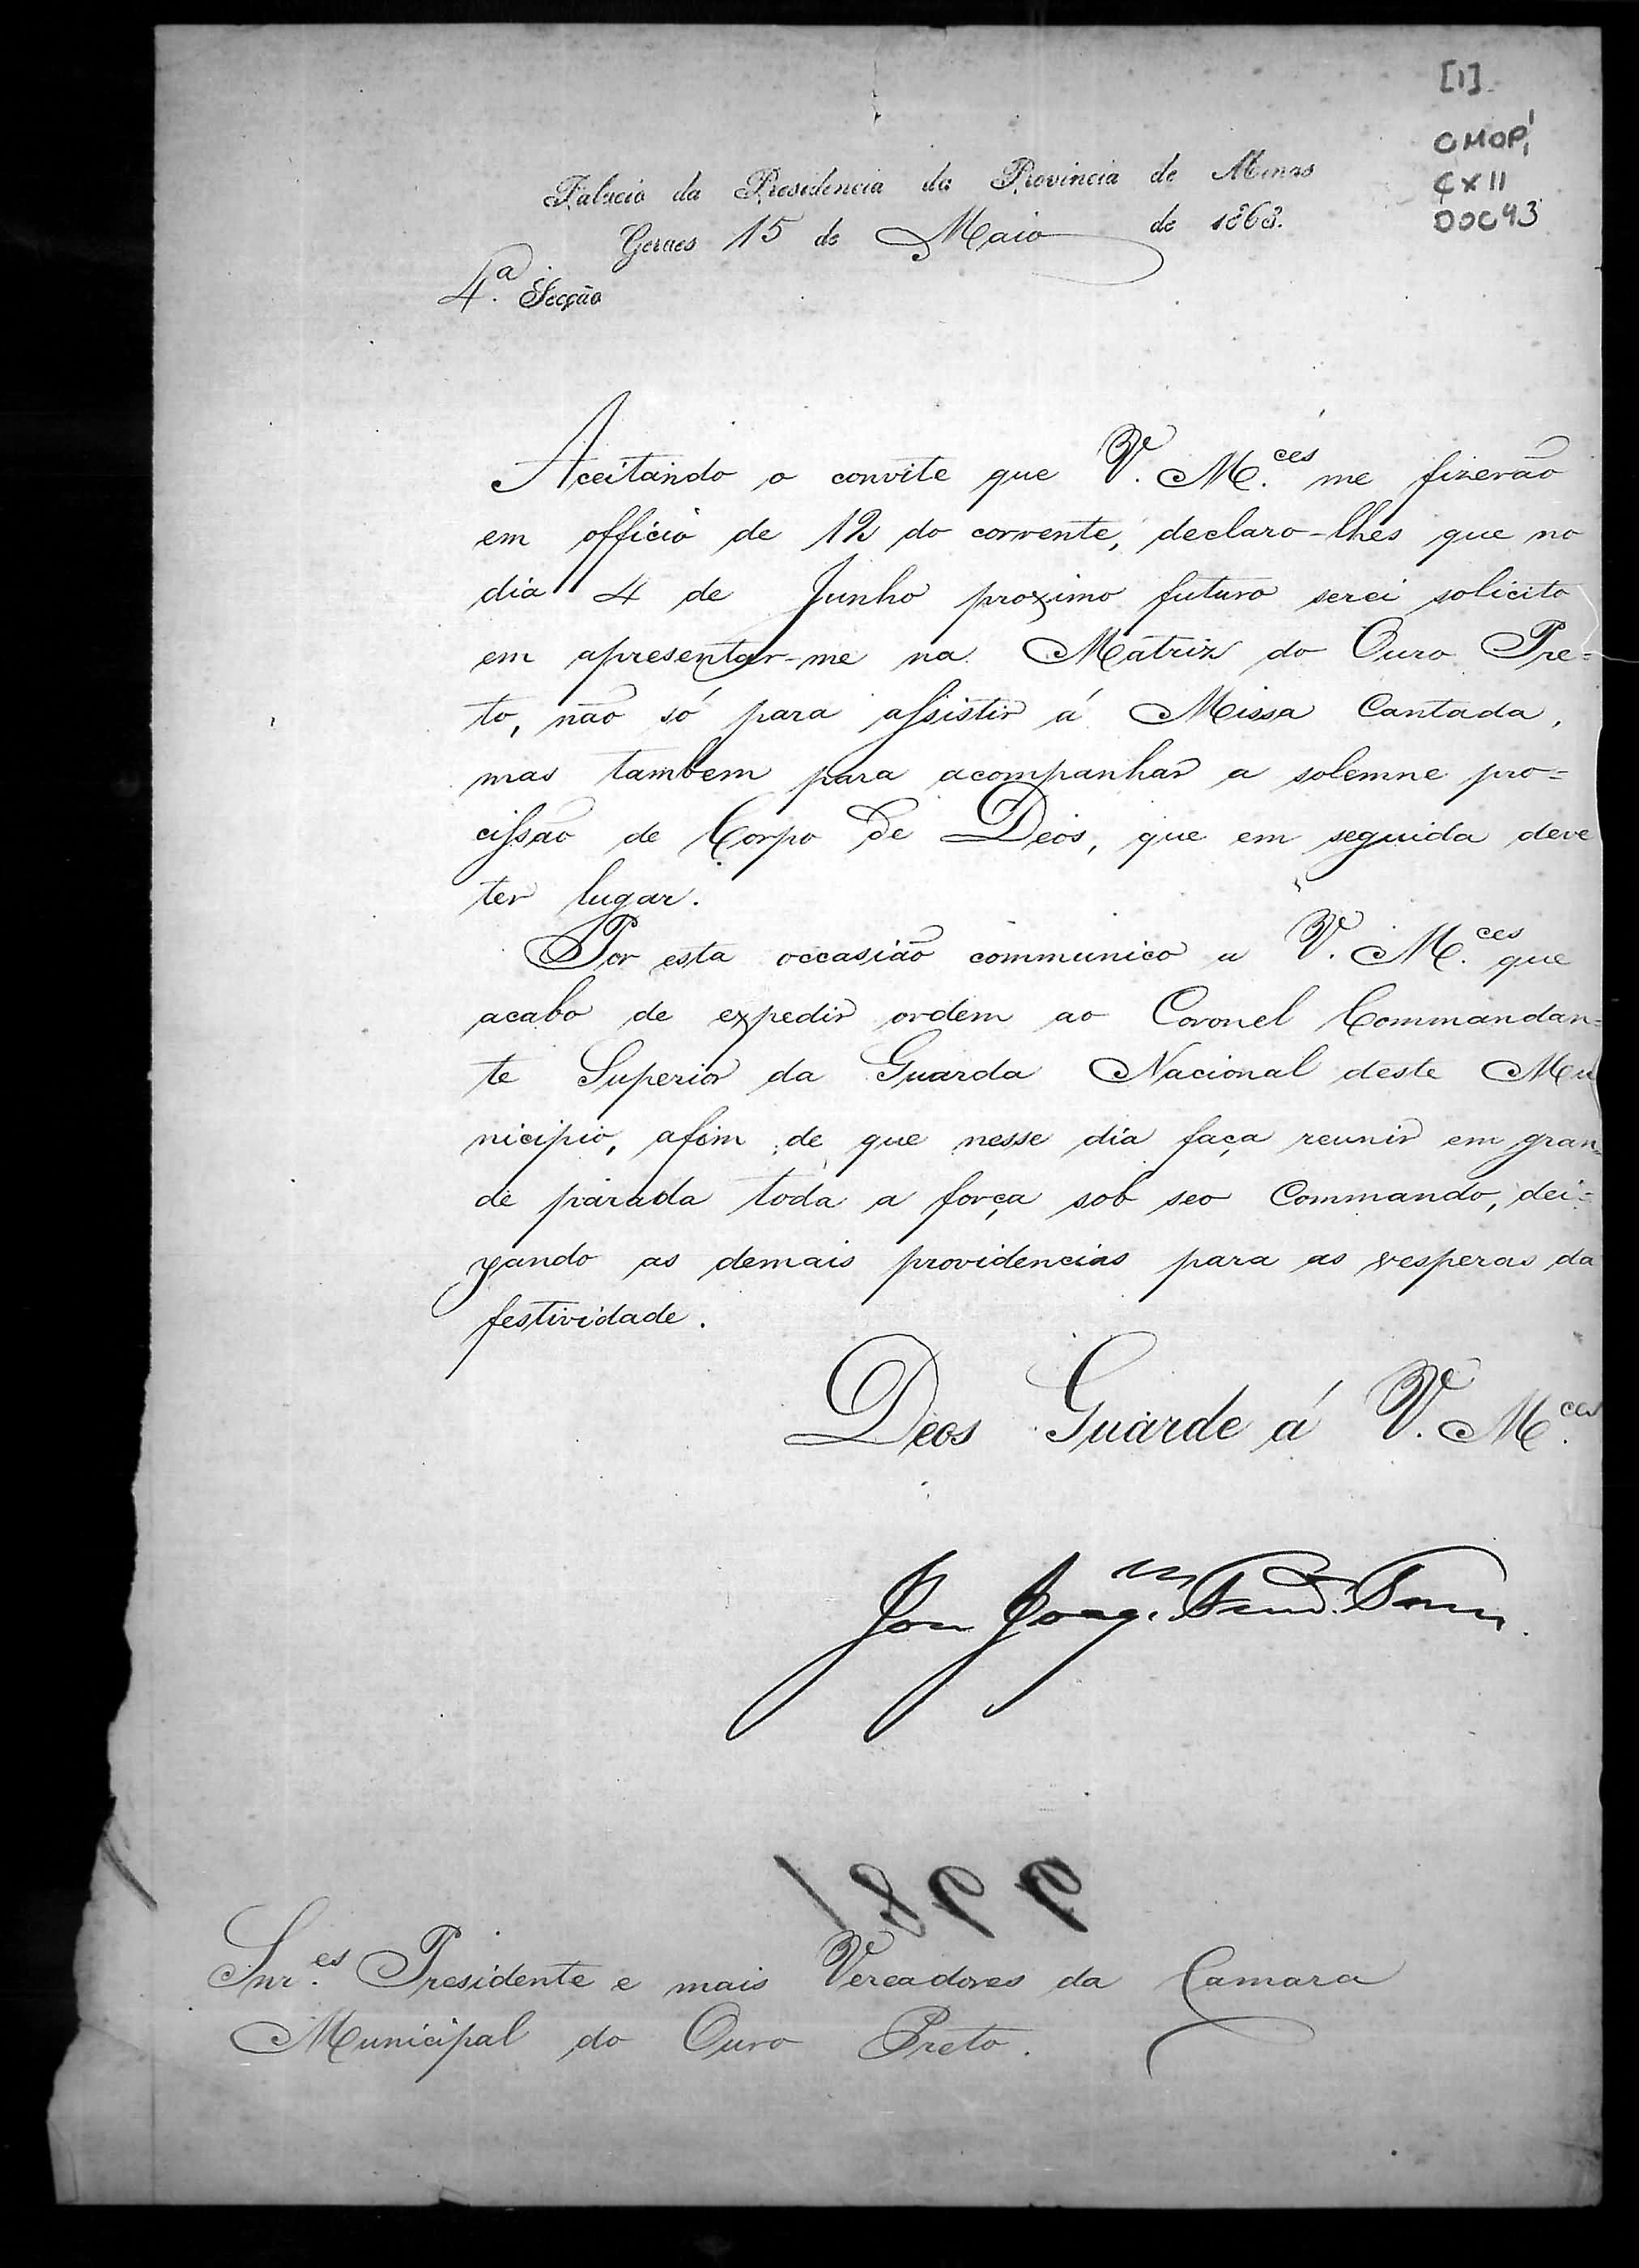 [1]
CMOP
CX 11
DOC 43
Palacio da Presidencia da Provincia de Minas
Geraes 15 de Maio de 1863.
4.ª Secção
Aceitando o convite que V. M.ces me fizerão
em officio de 12 do corrente, declaro-lhes que no
dia 4 de Junho proximo futuro serei solicito
em apresentar-me na Matriz do Ouro Pre=
to, não só para assistir á Missa Cantada,
mas tambem para acompanhar a solemne pro=
cissão de Corpo de Deos, que em seguida deve
ter lugar.
Por esta occasião communico a V. M.ces que
acabo de expedir ordem ao Coronel Commandan=
te Superior da Guarda Nacional deste Mu
nicipio, afim de que nesse dia faça reunir em gran=
de parada toda a força sob seo Commando, dei=
xando as demais providencias para as vesperas da
festividade.
Deos Guarde á V. M.ces
Joaq.m
Snr.es Presidente e mais Vereadores da Camara
Municipal do Ouro Preto.